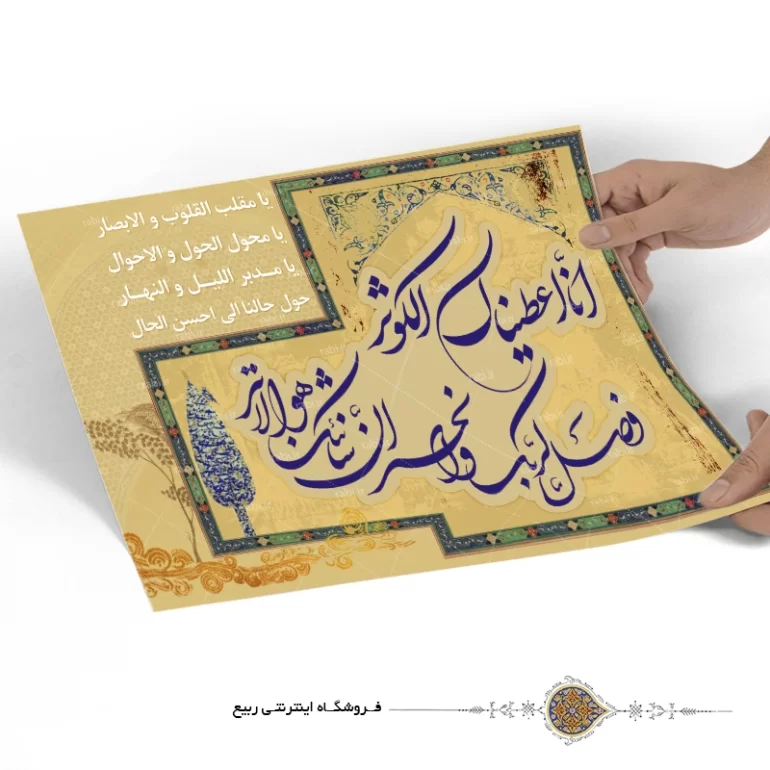 یا مقلب القلوب و الابصار
یا محول الحول و الاحوال
یا مدبر اللیل و النهار
حول حالنا الی احسن الحال
انا أعطیناک الکوثر
فصل لربک وانحر ان شانئک هو الابتر
فروشگاه اینترنتی ربیع